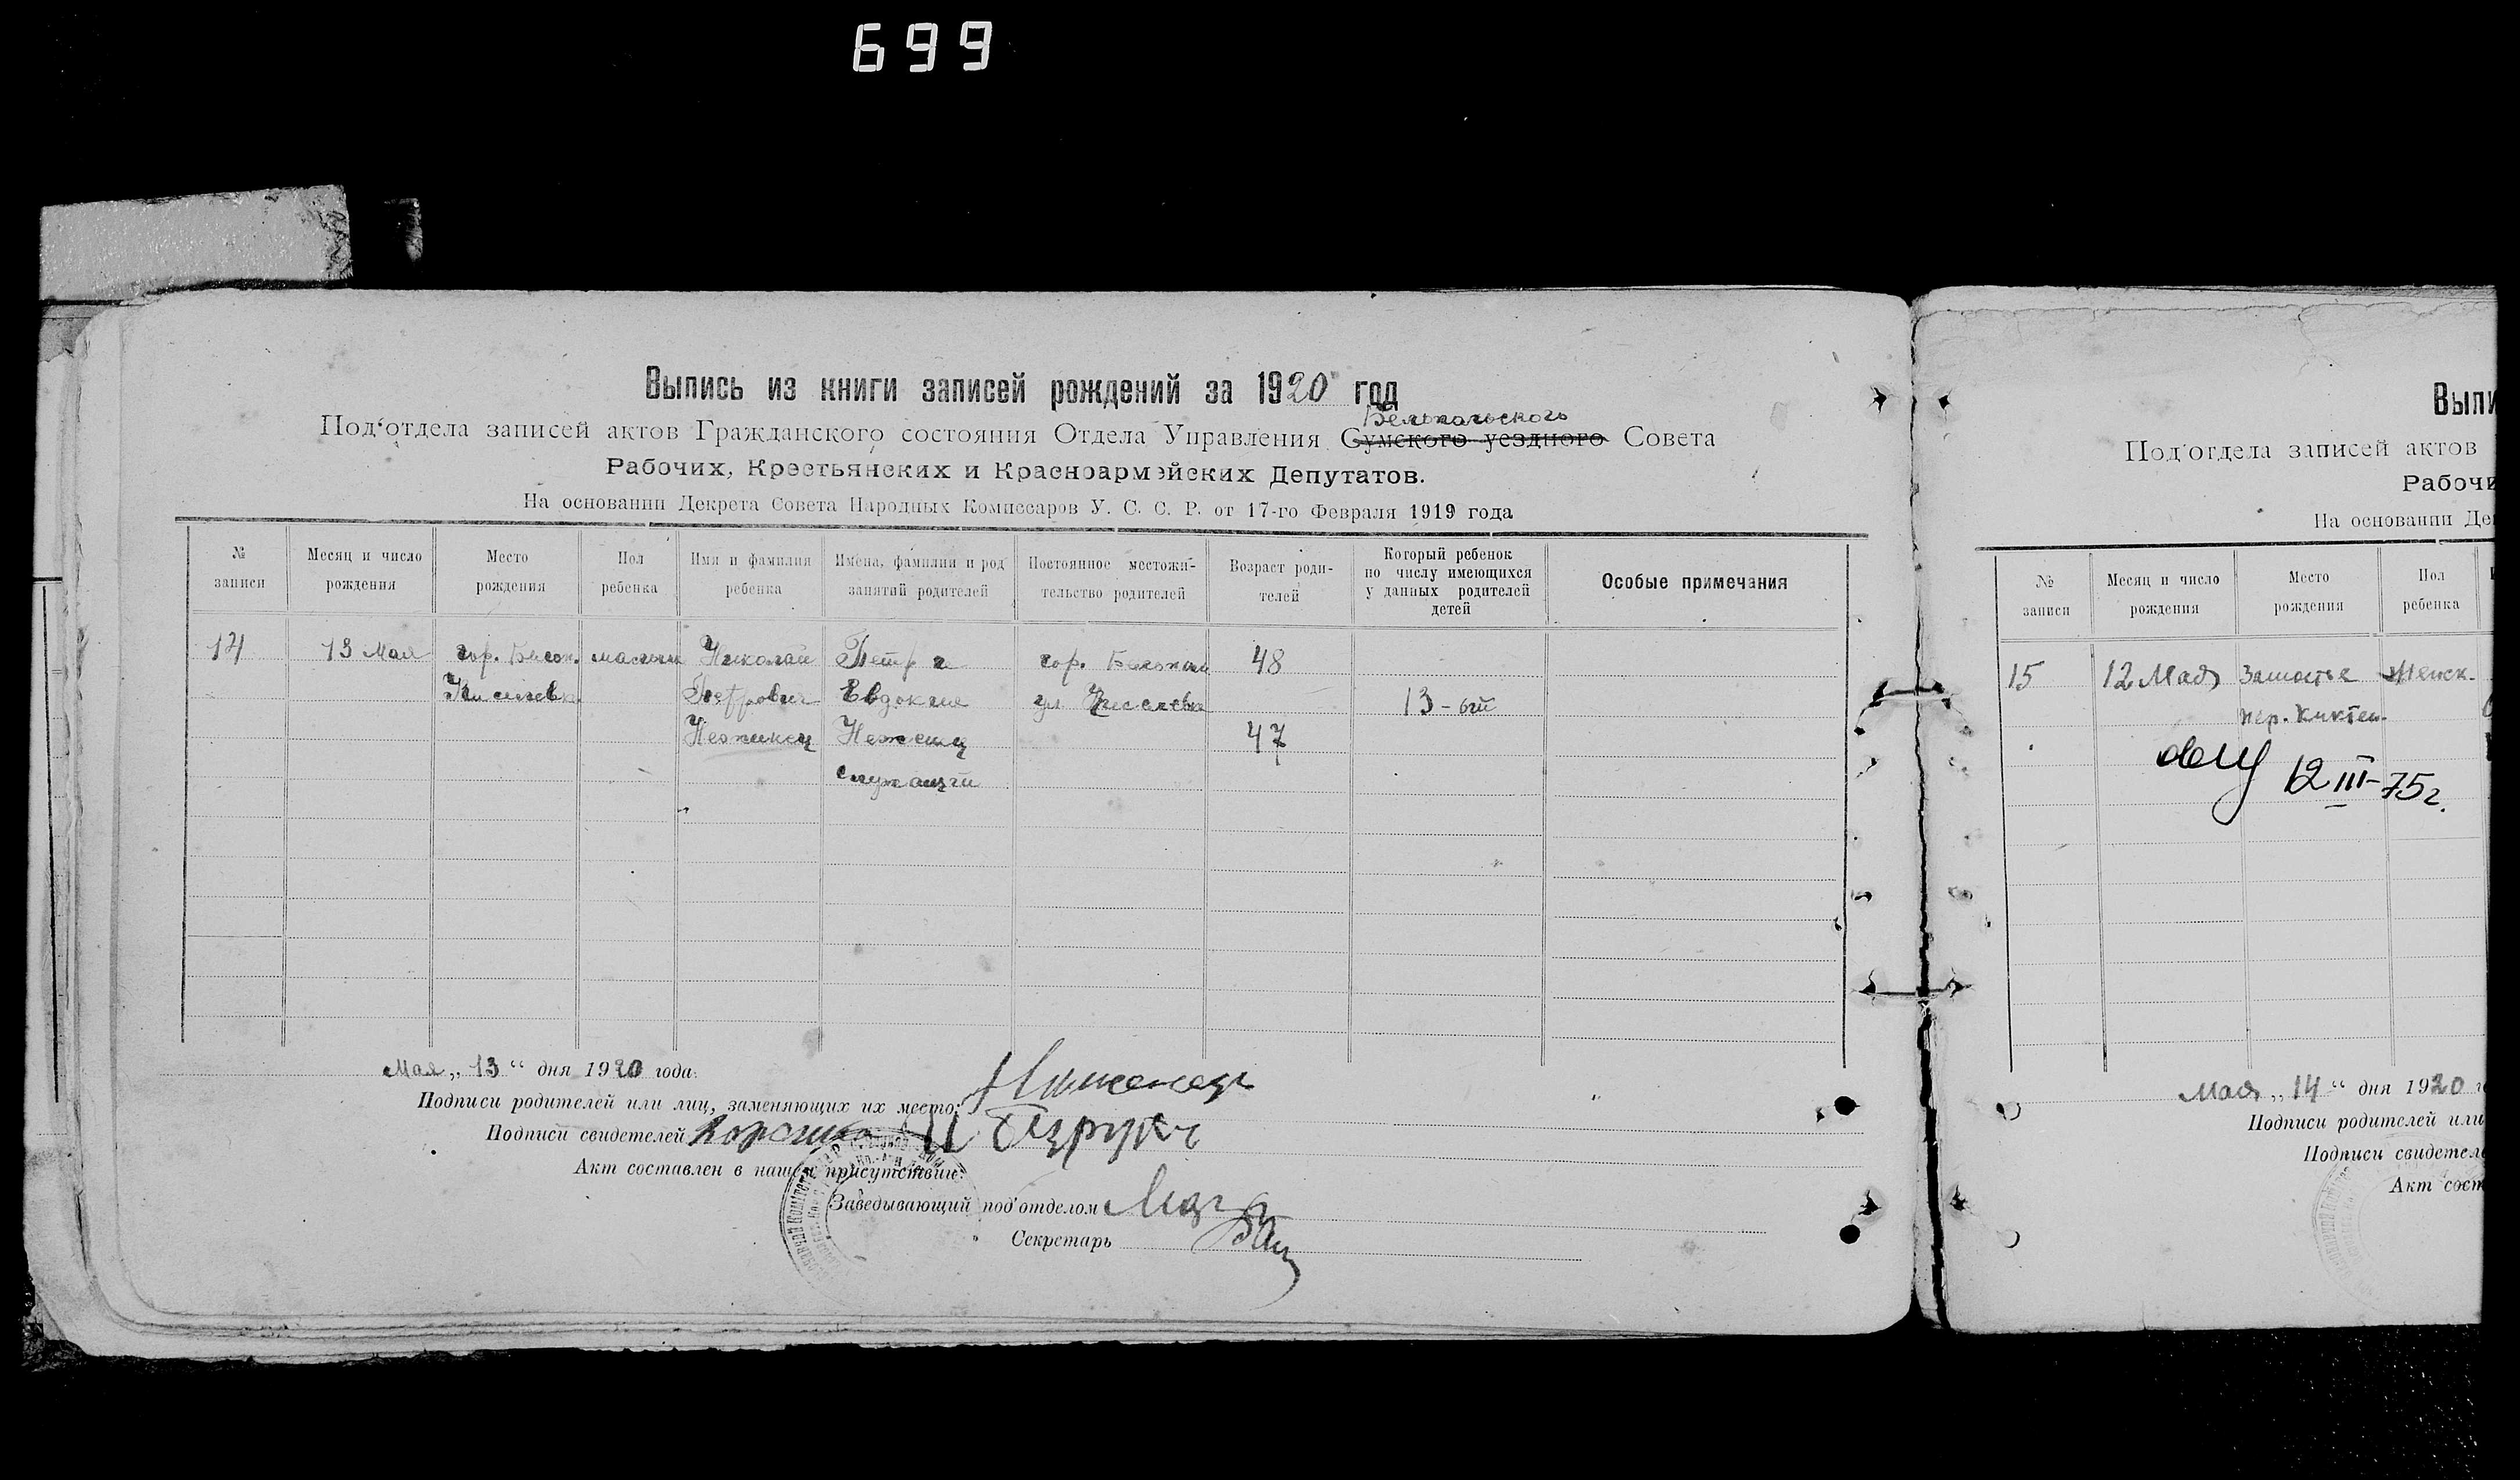 699
Выпись из книги записей рождений за 1920 год
Белопольского
Под'отдела записей актов Гражданского состояния Отдела Управления Сумского уездного Совета
Рабочих, Крестьянских и Красноармейских Депутатов.
На основании Декрета Совета Народных Комиссаров У. С. С. Р. от 17-го Февраля 1919 года
№ записи
Месяц и число рождения
Место рождения
Пол ребенка
Имя и фамилия ребенка
Имена, фамилии и род занятий родителей
Постоянное местожительство родителей
Возраст родителей
Который ребенок по числу имеющихся у данных родителей детей
Особые примечания
14 13 Мая гор. Белоп. Николай Петр и гор. Белополь 48
Петрович Евдокия ул 13-ый
47
Мая „13“ дня 1920 года.
Подписи родителей или лиц, заменяющих их место:
Подписи свидетелей
Акт составлен в нашем присутствии:
Заведывающий под'отделом
Секретарь
Выпи
Под'отдела записей актов
Рабочи
На основании Де
№ записи
Месяц и число рождения
Место рождения
Пол ребенка
15 12 Мая Замостье Женск.
пер.
12 III-75г.
Мая „14“ дня 1920 г
Подписи родителей или
Подписи свидетеле
Акт сост